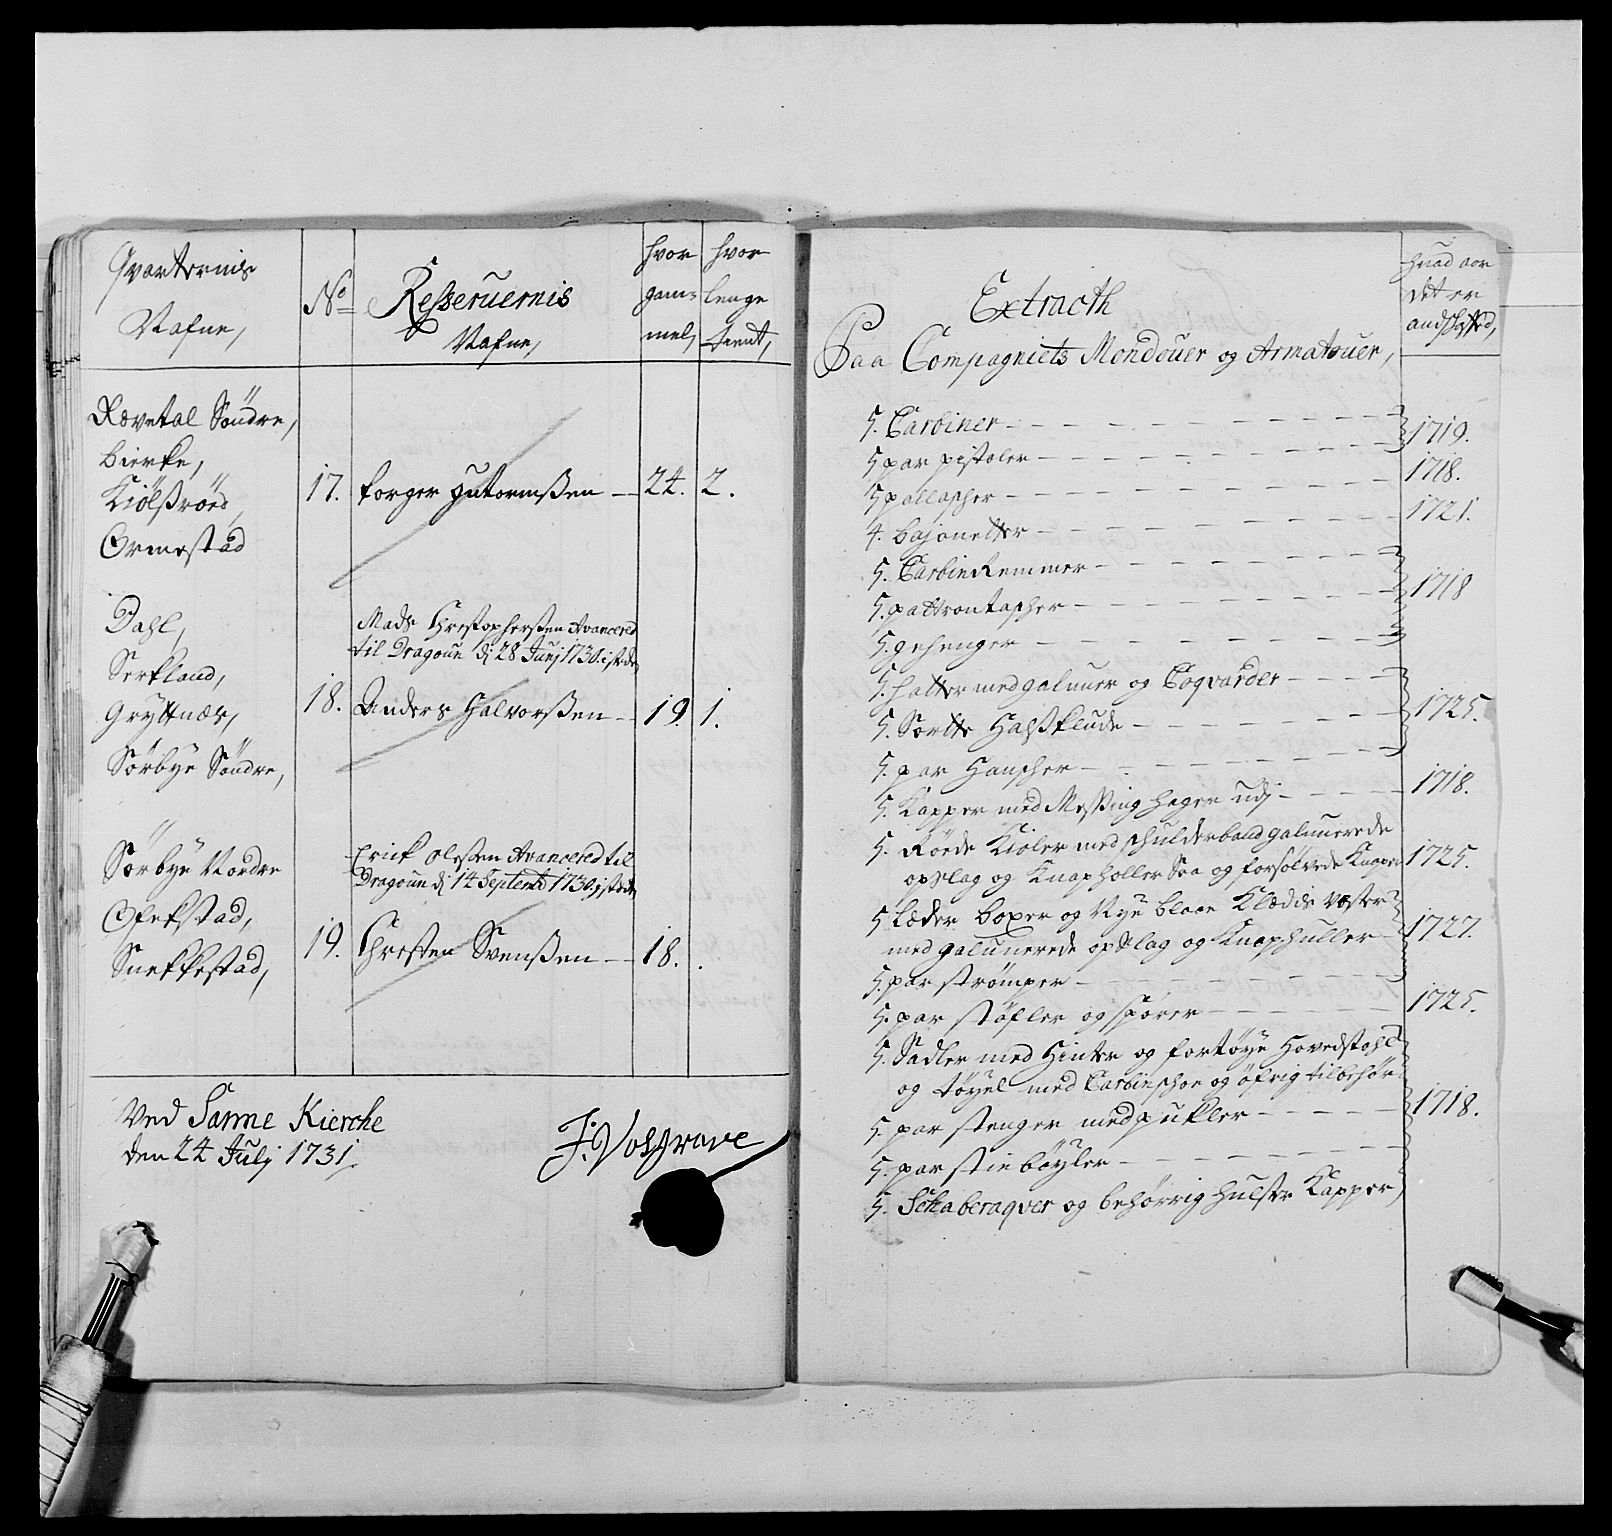 Qvarternis
Nafne,
No
Resseruernis
Nafne,
hvor
gam=
mel,
hvor
lenge
tient,
Rævetal Söndre,
Bierke,
Kiölßröd,
Ormestad
17. Torger Gutormßen — 24. 2.
Dahl,
Serkland,
Gryttnæs,
Sörbye Söndre,
Mads Christophersen Avancered
til Dragoun dj 28 Junj 1730. isteden
18. Anders Halvorßen — 19. 1.
Sörbye Nordre
Ofekstad,
Snekkestad,
Erick Olessen Avancered til
Dragoun dj 14 Septemb 1730. isteden
19. Christen Svenßen — 18. .
Ved Sanne Kierche
den 24 Julj 1731
Extracth
Paa Compagniets Mondouer og Armatouer,
huad aar
det er
andskaffed,
5. Carbiner
1719.
5 par pistoler
5 pallascher
1718.
4. bajonetter
1721.
5. Carbin Remmer
5. pattrontascher
1718
5. gehenger
5. hatter med galuner og Coqvarder
5. Sorte Halßklude
1725.
5. par Handscher
5. Kapper med Messing hager udj
1718.
5. Röede Kioler med schulderbaand galunerede
opslag og Knapholler Saa og forsölvede Knaper
1725.
5 Læder boxer og Nye blaae Klædis vester
med galunerede opslag og Knaphuller
1727.
5. par strömper
5. par stöfler og sporer
1725.
5. Sadler med Hinter og fortöye Hovedstohl
og töyel med Carbinschoe og öfrig tilbehör
5. par stenger med pukler
1718.
5. par stieböyler
5. Schaberaqver og behörrig hulster Kapper,